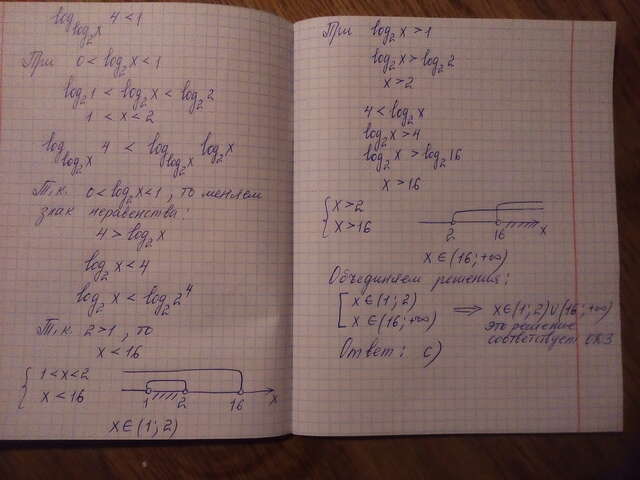 log_{log₂x} 4 < 1
При 0 < log₂x < 1
log₂1 < log₂x < log₂2
1 < x < 2
log_{log₂x} 4 < log_{log₂x} log₂x
Т.к. 0 < log₂x < 1, то меняем
знак неравенства:
4 > log₂x
log₂x < 4
log₂x < log₂2⁴
Т.к 2 > 1, то
x < 16
{ 1 < x < 2
x < 16
1 2 16 x
x ∈ (1; 2)
При log₂x > 1
log₂x > log₂2
x > 2
4 < log₂x
log₂x > 4
log₂x > log₂16
x > 16
{ x > 2
x > 16
2 16 x
x ∈ (16; +∞)
Объединяем решения:
[ x ∈ (1; 2)
x ∈ (16; +∞)
⇒ x ∈ (1; 2) ∪ (16; +∞)
Это решение
соответствует ОДЗ
Ответ: c)